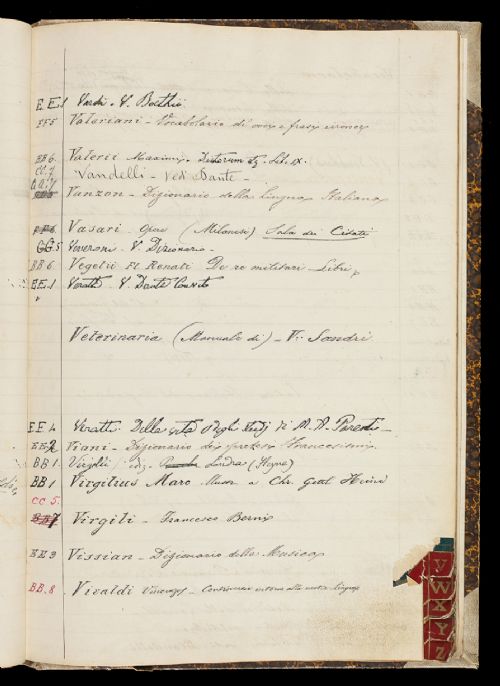 EE.1 Vardi. V. Boethio
EE5 Valeriani - Vocabolario di voci e frasi erronee
BB6. Valerii Maximi. Dictorum Lib. IX.
Vandelli - Vedi Dante -
Vanzon - Dizionario della lingua Italiana
Vasari - Opere (Milanesi) Sala dei Citati
GG.5 Veneroni. V. Dizionario -
BB6. Vegetii Fl. Renati De re militari Libri
EE.1 Veratti V. Dante
Veterinaria (Manuale di) - V. Sandri
EE4. Veratti Della vita degli studj di M. A. Parenti
EE2 Viani - Dizionario dei pretesi francesismi
BB1. Virgilii Londra (Heyne)
BB1 Virgilius Maro a Chr. Gottl Heine
CC 5.
7 Virgili - Francesco Berni
EE3 Vissian - Dizionario della Musica
BB.8 Vivaldi Vincenzo - intorno alla nostra lingua
V
W
X
Y
Z